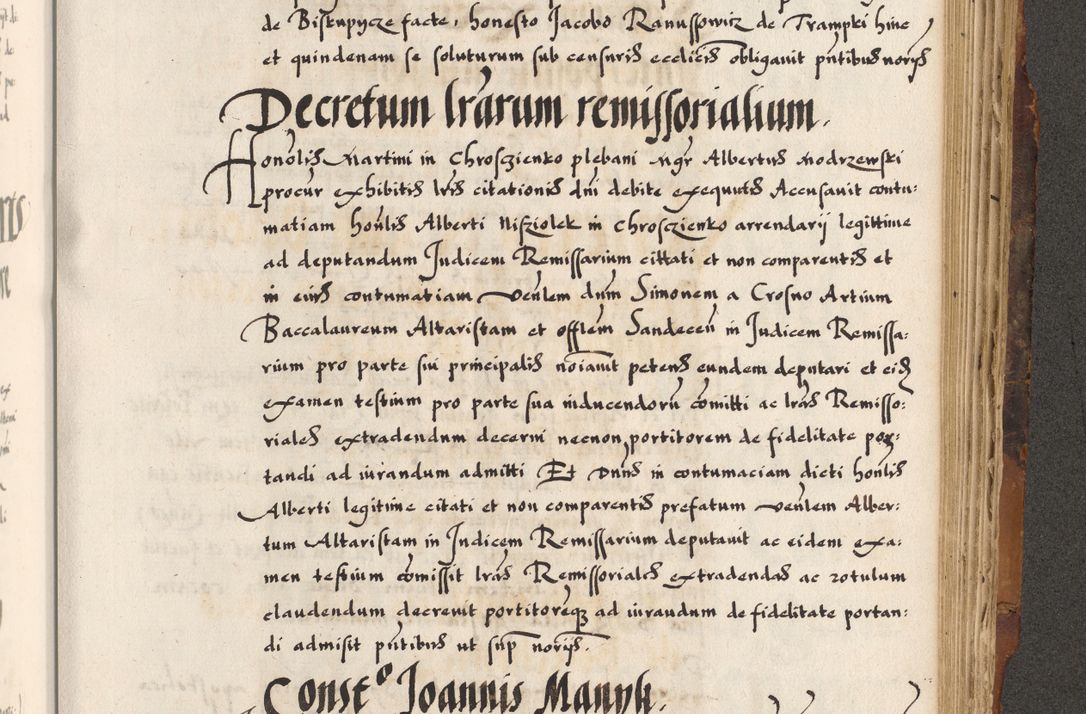 de Biskupycze facte, honesto Jacobo Ranussowicz de Trampki hinc
et quindenam se soluturum sub censuris ecclicis obligavit pntibus norijs
Decretum lrarum remissorialium.
Honolis Martini in Chrosczienko plebani Mgr Albertus Modrzewski
procur exhibitis lris citationis dni debite exequutis Accusavit contu:
matiam honlis Alberti Nisziolek in Chrosczienko arrendarij legittime
ad deputandum Judicem Remissarium cittati et non comparentis et
in eius contumatiam venlem dnm Simonem a Crosno Artium
Baccalaureum Altaristam et offlem Sandecen in Judicem Remissa:
rium pro parte sui principalis noiavit petens eundem deputari et eid
examen testium pro parte sua inducendoru comitti ac lras Remisso:
riales extradendum decerni necnon portitorem de fidelitate por:
tandi ad iurandum admitti Et Dnus in contumaciam dicti honlis
Alberti legitime citati et non comparentis prefatum venlem Alber:
tum Altaristam in Judicem Remissarium deputavit ac eidem exa:
men testium comissit lras Remissoriales extradendas ac rotulum
claudendum decrevit portitoreque ad iurandum de fidelitate portan:
di admisit pntibus ut sup norijs.
Const° Joannis Manyk.